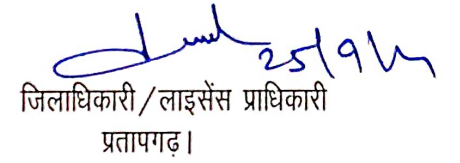 25/9/
जिलाधिकारी/लाइसेंस प्राधिकारी
प्रतापगढ़।